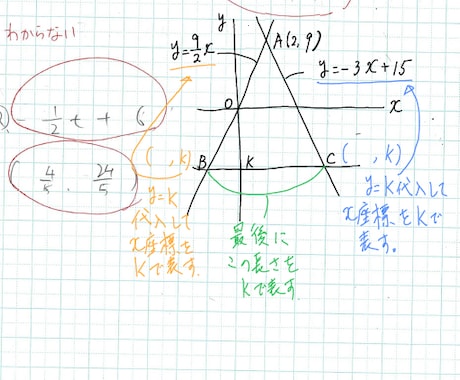 わからない
y
A(2, 9)
y=9/2x
y=-3x+15
- 1/2 t + 6
O
x
( , k)
( , k)
B
K
C
(4/5 . 24/5)
y=k
代入して
x座標を
kで表す
最後に
この長さを
kで表す
y=k代入して
x座標をkで
表す。